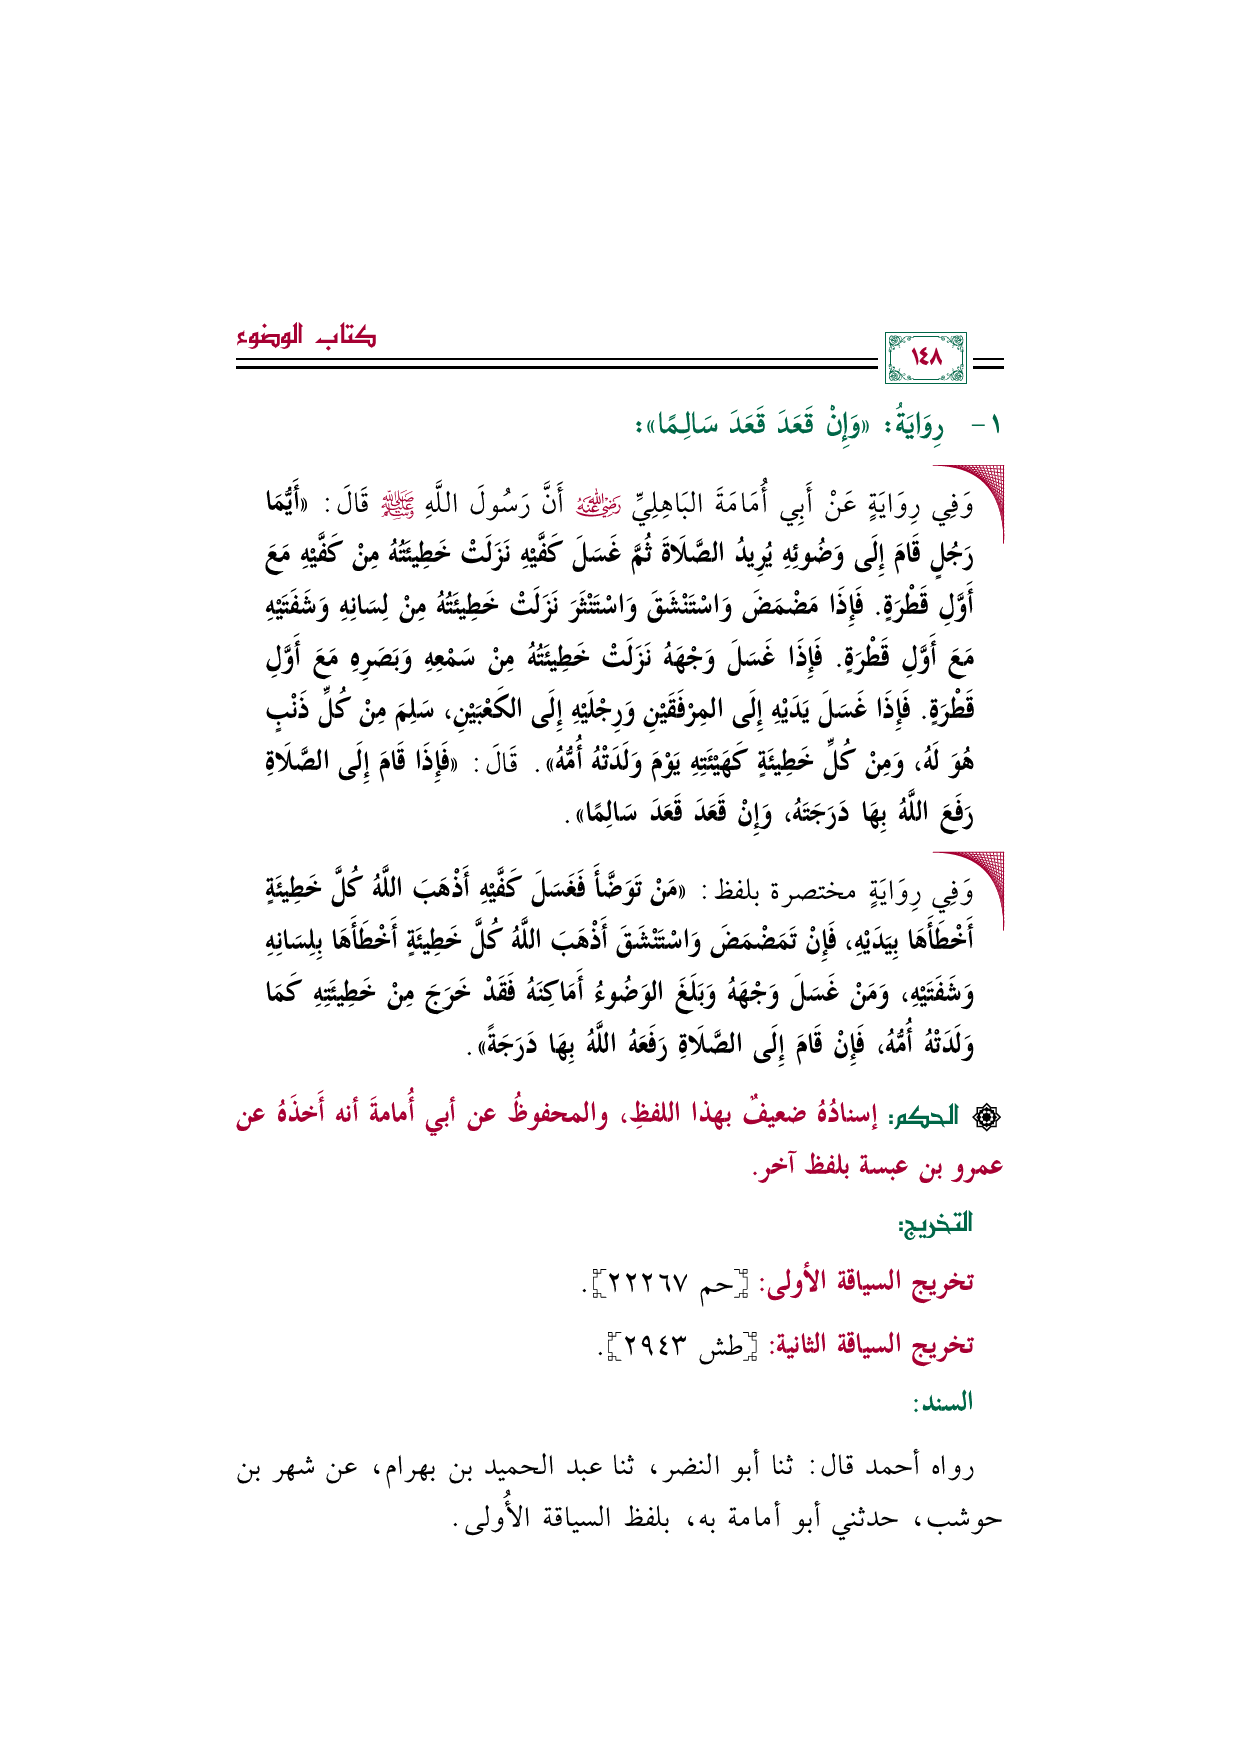 كتاب الوضوء
١٤٨
١- رِوَايَةُ: «وَإِنْ قَعَدَ قَعَدَ سَالِـمًا»:
وَفِي رِوَايَةٍ عَنْ أَبِي أُمَامَةَ البَاهِلِيِّ رضي الله عنه أَنَّ رَسُولَ اللَّهِ ﷺ قَالَ: «أَيُّمَا
رَجُلٍ قَامَ إِلَى وَضُوئِهِ يُرِيدُ الصَّلَاةَ ثُمَّ غَسَلَ كَفَّيْهِ نَزَلَتْ خَطِيئَتُهُ مِنْ كَفَّيْهِ مَعَ
أَوَّلِ قَطْرَةٍ. فَإِذَا مَضْمَضَ وَاسْتَنْشَقَ وَاسْتَنْثَرَ نَزَلَتْ خَطِيئَتُهُ مِنْ لِسَانِهِ وَشَفَتَيْهِ
مَعَ أَوَّلِ قَطْرَةٍ. فَإِذَا غَسَلَ وَجْهَهُ نَزَلَتْ خَطِيئَتُهُ مِنْ سَمْعِهِ وَبَصَرِهِ مَعَ أَوَّلِ
قَطْرَةٍ. فَإِذَا غَسَلَ يَدَيْهِ إِلَى المِرْفَقَيْنِ وَرِجْلَيْهِ إِلَى الكَعْبَيْنِ، سَلِمَ مِنْ كُلِّ ذَنْبٍ
هُوَ لَهُ، وَمِنْ كُلِّ خَطِيئَةٍ كَهَيْئَتِهِ يَوْمَ وَلَدَتْهُ أُمُّهُ». قَالَ: «فَإِذَا قَامَ إِلَى الصَّلَاةِ
رَفَعَ اللَّهُ بِهَا دَرَجَتَهُ، وَإِنْ قَعَدَ قَعَدَ سَالِمًا».
وَفِي رِوَايَةٍ مختصرة بلفظ: «مَنْ تَوَضَّأَ فَغَسَلَ كَفَّيْهِ أَذْهَبَ اللَّهُ كُلَّ خَطِيئَةٍ
أَخْطَأَهَا بِيَدَيْهِ، فَإِنْ تَمَضْمَضَ وَاسْتَنْشَقَ أَذْهَبَ اللَّهُ كُلَّ خَطِيئَةٍ أَخْطَأَهَا بِلِسَانِهِ
وَشَفَتَيْهِ، وَمَنْ غَسَلَ وَجْهَهُ وَبَلَغَ الوَضُوءُ أَمَاكِنَهُ فَقَدْ خَرَجَ مِنْ خَطِيئَتِهِ كَمَا
وَلَدَتْهُ أُمُّهُ، فَإِنْ قَامَ إِلَى الصَّلَاةِ رَفَعَهُ اللَّهُ بِهَا دَرَجَةً».
الحكم: إسنادُهُ ضعيفٌ بهذا اللفظِ، والمحفوظُ عن أبي أُمامةَ أنه أَخذَهُ عن
عمرو بن عبسة بلفظ آخر.
التخريج:
تخريج السياقة الأولى: [حم ٢٢٢٦٧].
تخريج السياقة الثانية: [طش ٢٩٤٣].
السند:
رواه أحمد قال: ثنا أبو النضر، ثنا عبد الحميد بن بهرام، عن شهر بن
حوشب، حدثني أبو أمامة به، بلفظ السياقة الأُولى.